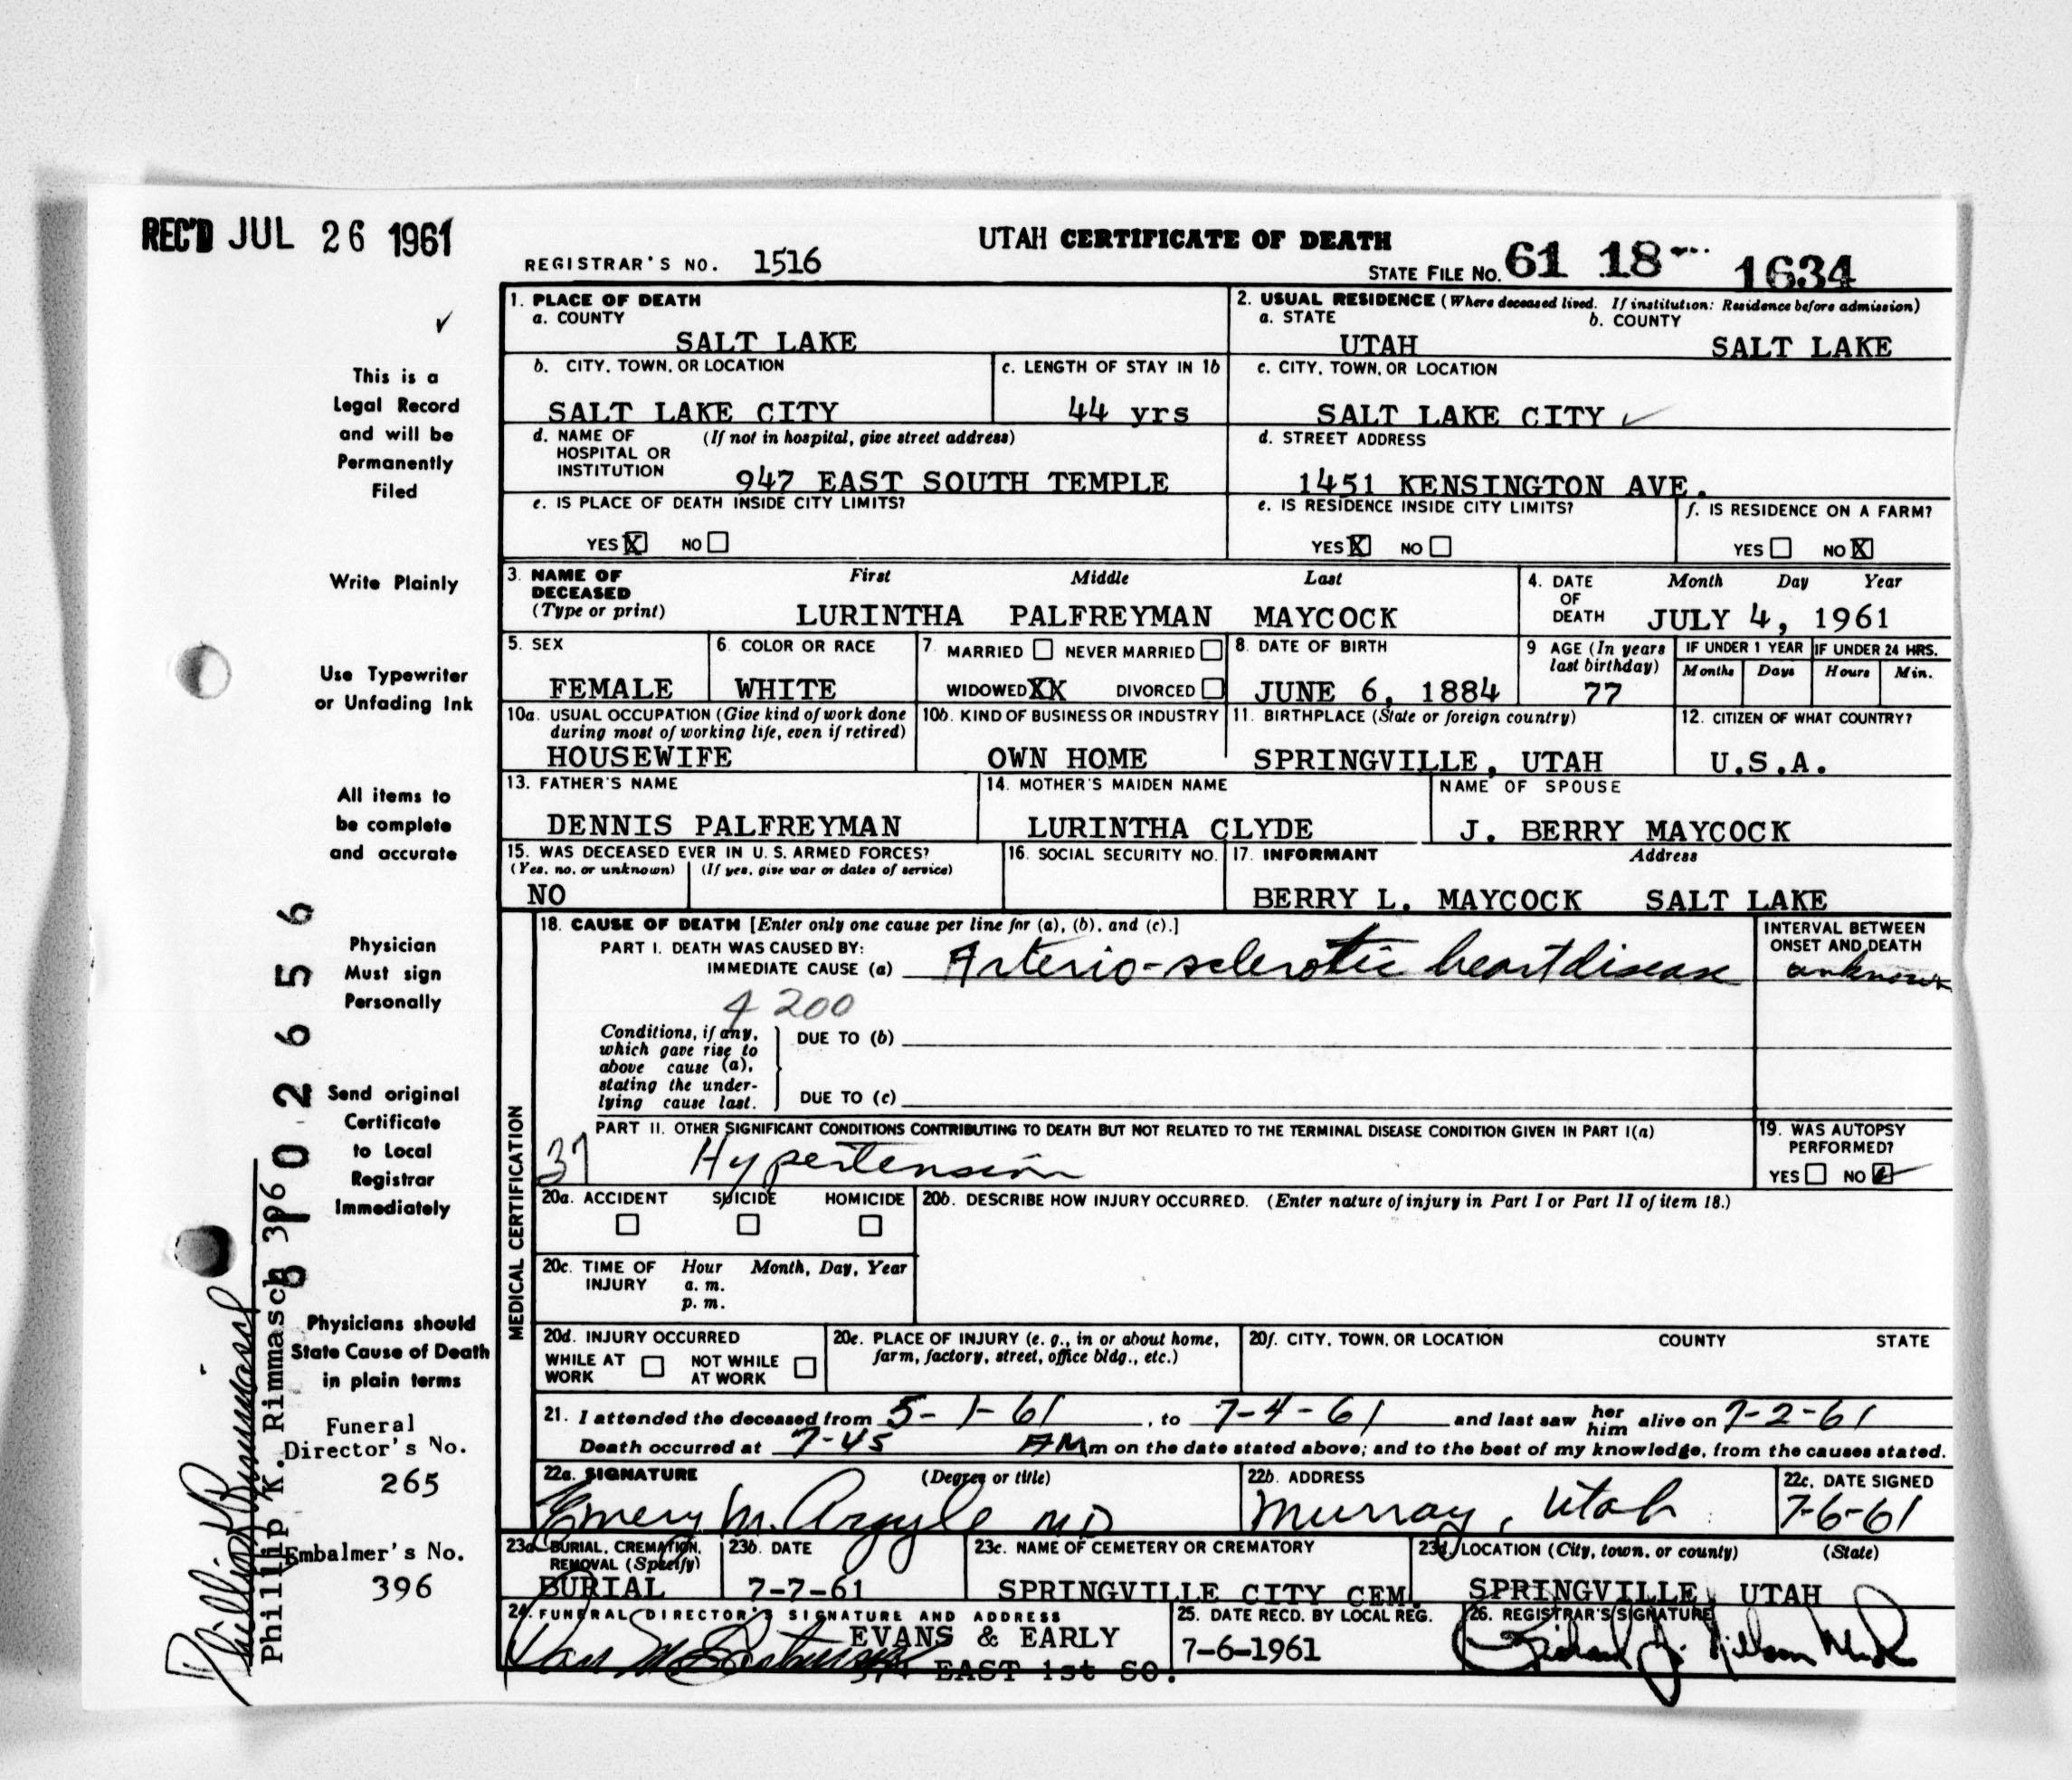 REC'D JUL 26 1961
UTAH CERTIFICATE OF DEATH
REGISTRAR'S NO. 1516
STATE FILE NO. 61 18 1634
1. PLACE OF DEATH
a. COUNTY
SALT LAKE
2. USUAL RESIDENCE (Where deceased lived. If institution: Residence before admission)
a. STATE b. COUNTY
UTAH SALT LAKE
b. CITY, TOWN, OR LOCATION
SALT LAKE CITY
c. LENGTH OF STAY IN 1b
44 yrs
c. CITY, TOWN, OR LOCATION
SALT LAKE CITY ✓
d. NAME OF (If not in hospital, give street address)
HOSPITAL OR
INSTITUTION
947 EAST SOUTH TEMPLE
d. STREET ADDRESS
1451 KENSINGTON AVE.
e. IS PLACE OF DEATH INSIDE CITY LIMITS?
YES X NO
e. IS RESIDENCE INSIDE CITY LIMITS?
YES X NO
f. IS RESIDENCE ON A FARM?
YES NO X
3. NAME OF First Middle Last
DECEASED
(Type or print) LURINTHA PALFREYMAN MAYCOCK
4. DATE Month Day Year
OF
DEATH JULY 4, 1961
5. SEX
FEMALE
6. COLOR OR RACE
WHITE
7. MARRIED NEVER MARRIED
WIDOWED XX DIVORCED
8. DATE OF BIRTH
JUNE 6, 1884
9 AGE (In years
last birthday)
77
IF UNDER 1 YEAR IF UNDER 24 HRS.
Months Days Hours Min.
10a. USUAL OCCUPATION (Give kind of work done
during most of working life, even if retired)
HOUSEWIFE
10b. KIND OF BUSINESS OR INDUSTRY
OWN HOME
11. BIRTHPLACE (State or foreign country)
SPRINGVILLE, UTAH
12. CITIZEN OF WHAT COUNTRY?
U.S.A.
13. FATHER'S NAME
DENNIS PALFREYMAN
14. MOTHER'S MAIDEN NAME
LURINTHA CLYDE
NAME OF SPOUSE
J. BERRY MAYCOCK
15. WAS DECEASED EVER IN U. S. ARMED FORCES?
(Yes, no, or unknown) (If yes, give war or dates of service)
NO
16. SOCIAL SECURITY NO.
17. INFORMANT Address
BERRY L. MAYCOCK SALT LAKE
MEDICAL CERTIFICATION
18. CAUSE OF DEATH [Enter only one cause per line for (a), (b), and (c).]
PART I. DEATH WAS CAUSED BY:
IMMEDIATE CAUSE (a) Arterio-sclerotic heart disease
INTERVAL BETWEEN
ONSET AND DEATH
unknown
4200
Conditions, if any,
which gave rise to
above cause (a),
stating the under-
lying cause last.
DUE TO (b)
DUE TO (c)
PART II. OTHER SIGNIFICANT CONDITIONS CONTRIBUTING TO DEATH BUT NOT RELATED TO THE TERMINAL DISEASE CONDITION GIVEN IN PART I(a)
37 Hypertension
19. WAS AUTOPSY
PERFORMED?
YES NO ✓
20a. ACCIDENT SUICIDE HOMICIDE
20b. DESCRIBE HOW INJURY OCCURRED. (Enter nature of injury in Part I or Part II of item 18.)
20c. TIME OF Hour Month, Day, Year
INJURY a. m.
p. m.
20d. INJURY OCCURRED
WHILE AT NOT WHILE
WORK AT WORK
20e. PLACE OF INJURY (e. g., in or about home,
farm, factory, street, office bldg., etc.)
20f. CITY, TOWN, OR LOCATION COUNTY STATE
21. I attended the deceased from 5-1-61, to 7-4-61 and last saw her him alive on 7-2-61
Death occurred at 7-45 AM m on the date stated above; and to the best of my knowledge, from the causes stated.
22a. SIGNATURE (Degree or title)
Emery M. Argyle MD
22b. ADDRESS
Murray, Utah
22c. DATE SIGNED
7-6-61
23a. BURIAL, CREMATION,
REMOVAL (Specify)
BURIAL
23b. DATE
7-7-61
23c. NAME OF CEMETERY OR CREMATORY
SPRINGVILLE CITY CEM.
23d. LOCATION (City, town, or county) (State)
SPRINGVILLE, UTAH
24. FUNERAL DIRECTOR'S SIGNATURE AND ADDRESS
EVANS & EARLY
EAST 1st SO.
25. DATE RECD. BY LOCAL REG.
7-6-1961
26. REGISTRAR'S SIGNATURE
Richard J. Nelson
✓
This is a
Legal Record
and will be
Permanently
Filed
Write Plainly
Use Typewriter
or Unfading Ink
All items to
be complete
and accurate
Physician
Must sign
Personally
Send original
Certificate
to Local
Registrar
Immediately
Physicians should
State Cause of Death
in plain terms
Funeral
Director's No.
265
Embalmer's No.
396
26566
Phillip K. Rimmasch
Phillip K. Rimmasch 396